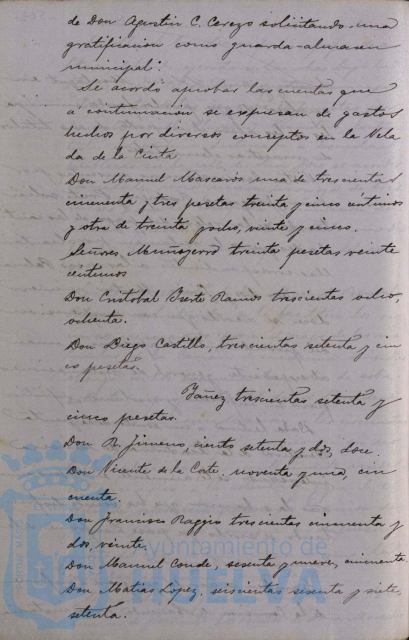 de Don Agustin C. Cerezo solicitando una
gratificacion como guarda-almacen
municipal.
Se acordó aprobar las cuentas que
á continuacion se expresan de gastos
hechos por diversos conceptos en la Vela
da de la Cinta
Don Manuel Mascarós una de trescientas
cincuenta y tres pesetas treinta y cinco céntimos
y otra de treinta y ocho, veinte y cinco.
Señores treinta pesetas veinte
céntimos
Don Cristobal Ramos trescientas ocho,
ochenta.
Don Diego Castillo, trescientas setenta y cin
co pesetas.
Yañez trescientas setenta y
cinco pesetas.
Don R. Jimeno, ciento setenta y dos, doce.
Don Vicente de la Corte, noventa y una, cin
cuenta.
Don Francisco Raggio trescientas cincuenta y
dos, veinte.
Don Manuel Conde, sesenta y nueve, cincuenta.
Don Matias Lopez, seiscientas sesenta y siete,
setenta.
Ayuntamiento de
HUELVA